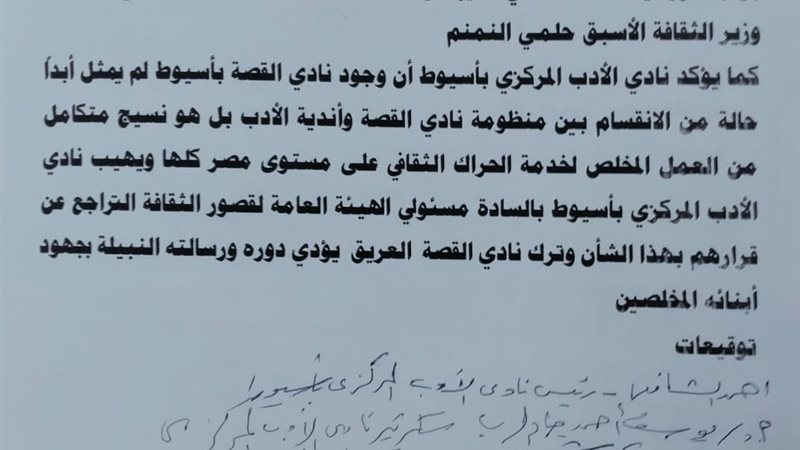 وزير الثقافة الأسبق حلمي النمنم
كما يؤكد نادي الأدب المركزي بأسيوط أن وجود نادي القصة بأسيوط لم يمثل أبداً
حالة من الانقسام بين منظومة نادي القصة وأندية الأدب بل هو نسيج متكامل
من العمل المخلص لخدمة الحراك الثقافي على مستوى مصر كلها ويهيب نادي
الأدب المركزي بأسيوط بالسادة مسئولي الهيئة العامة لقصور الثقافة التراجع عن
قرارهم بهذا الشأن وترك نادي القصة العريق يؤدي دوره ورسالته النبيلة بجهود
أبنائه المخلصين
توقيعات
احمد الشافعى - رئيس نادى الأدب المركزى
أحمد سكرتير نادى الأدب المركزى